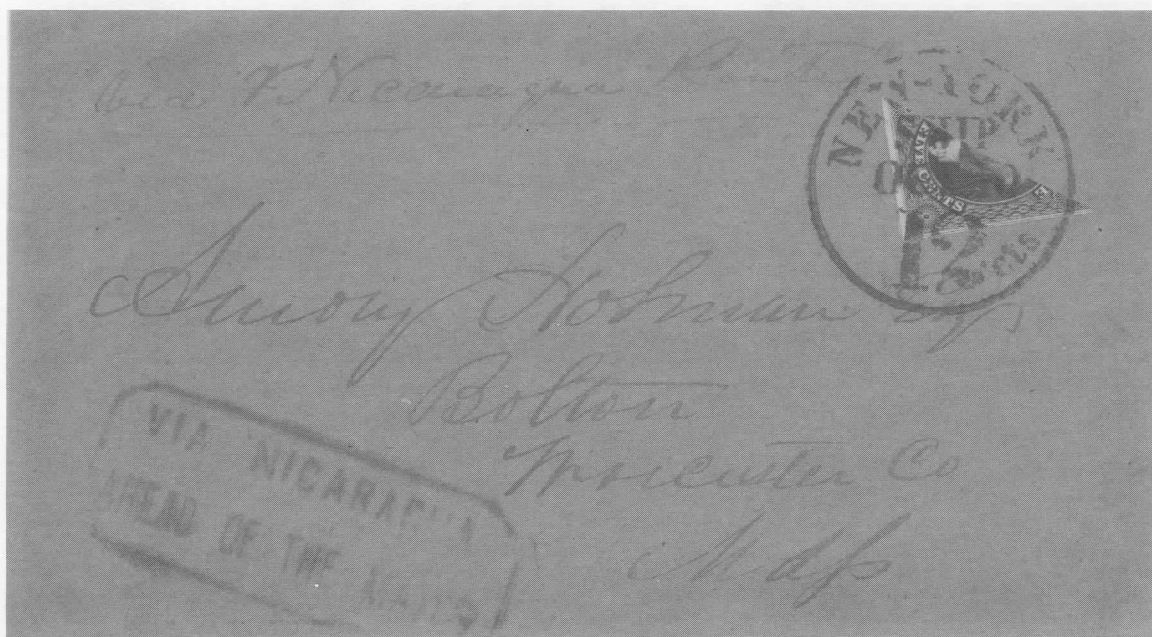 via Nicaragua Route
NEW-YORK
SHIP
CENTS
12 Cts
Amory Holman Esq
Bolton
Worcester Co
Mass
VIA NICARAGUA
AHEAD OF THE MAILS